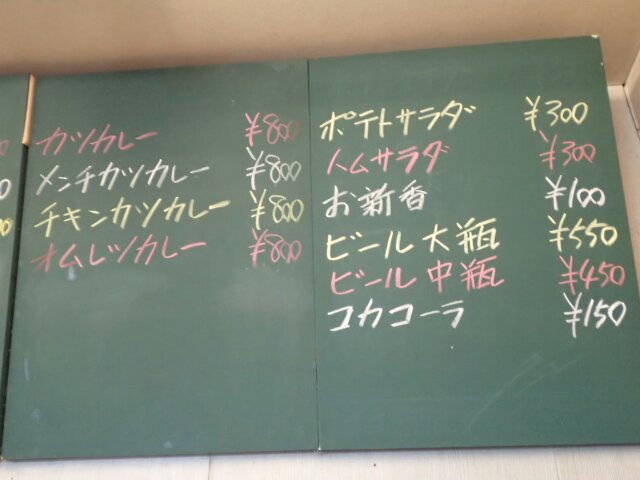 カツカレー ¥800
メンチカツカレー ¥800
チキンカツカレー ¥800
オムレツカレー ¥800
ポテトサラダ ¥300
ハムサラダ ¥300
お新香 ¥100
ビール大瓶 ¥550
ビール中瓶 ¥450
コカコーラ ¥150